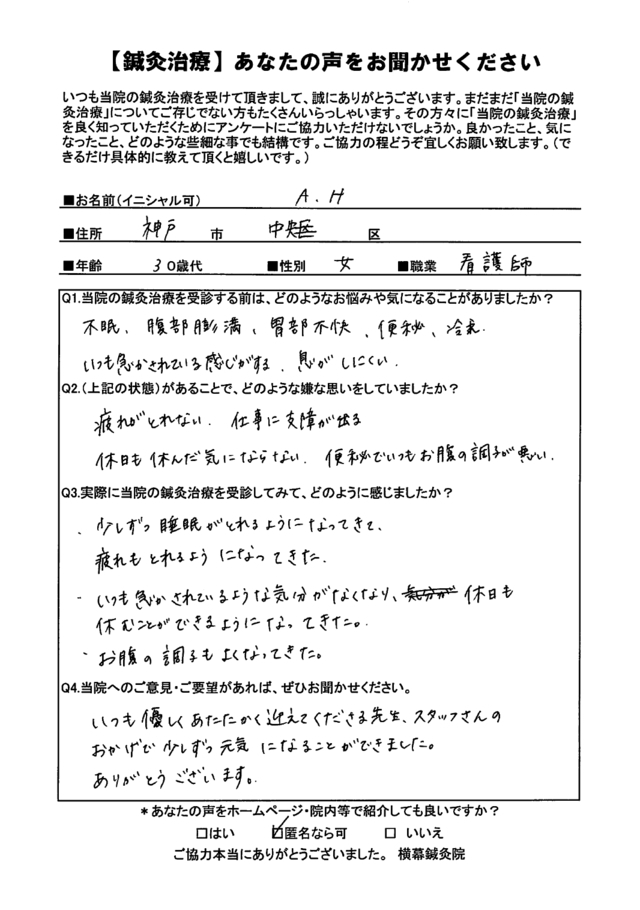 【鍼灸治療】あなたの声をお聞かせください
いつも当院の鍼灸治療を受けて頂きまして、誠にありがとうございます。まだまだ「当院の鍼
灸治療」についてご存じでない方もたくさんいらっしゃいます。その方々に「当院の鍼灸治療」
を良く知っていただくためにアンケートにご協力いただけないでしょうか。良かったこと、気に
なったこと、どのような些細な事でも結構です。ご協力の程どうぞ宜しくお願い致します。(で
きるだけ具体的に教えて頂くと嬉しいです。)
■お名前(イニシャル可) A.H
■住所 神戸 市 中央区 区
■年齢 30歳代 ■性別 女 ■職業 看護師
Q1.当院の鍼灸治療を受診する前は、どのようなお悩みや気になることがありましたか?
不眠、腹部膨満、胃部不快、便秘、冷え.
いつも急かされている感じがする. 息がしにくい.
Q2.(上記の状態)があることで、どのような嫌な思いをしていましたか?
疲れがとれない. 仕事に支障が出る
休日も休んだ気にならない. 便秘でいつもお腹の調子が悪い.
Q3.実際に当院の鍼灸治療を受診してみて、どのように感じましたか?
・少しずつ睡眠がとれるようになってきて、
疲れもとれるようになってきた.
・いつも急かされているような気分がなくなり、気分が 休日も
休むことができるようになってきた。
・お腹の調子もよくなってきた。
Q4.当院へのご意見・ご要望があれば、ぜひお聞かせください。
いつも優しくあたたかく迎えてくださる先生、スタッフさんの
おかげで少しずつ元気になることができました。
ありがとうございます。
*あなたの声をホームページ・院内等で紹介しても良いですか?
□はい ☑匿名なら可 □いいえ
ご協力本当にありがとうございました。 横幕鍼灸院